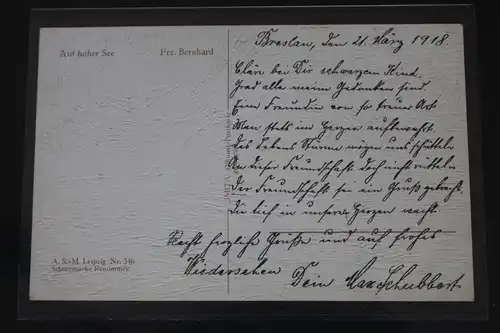 Auf hoher See
Frz. Bernhard
Breslau, den 21. März 1918.
Cläre bei Dir schwarzem Kind,
Grad alle meine Gedanken sind
Eine Freundin von so treuer Art
Man stets im Herzen aufbewahrt.
Des Lebens Stürme mögen uns schütteln
An dieser Freundschaft doch nicht rütteln
Der Freundschaft sei ein Gruß gebracht
Die tief in unseren Herzen wacht.
Recht herzliche Grüße und auf frohes
Wiedersehen Dein Max Schubbert.
A. S.-M. Leipzig Nr. 346
Schutzmarke Renommee